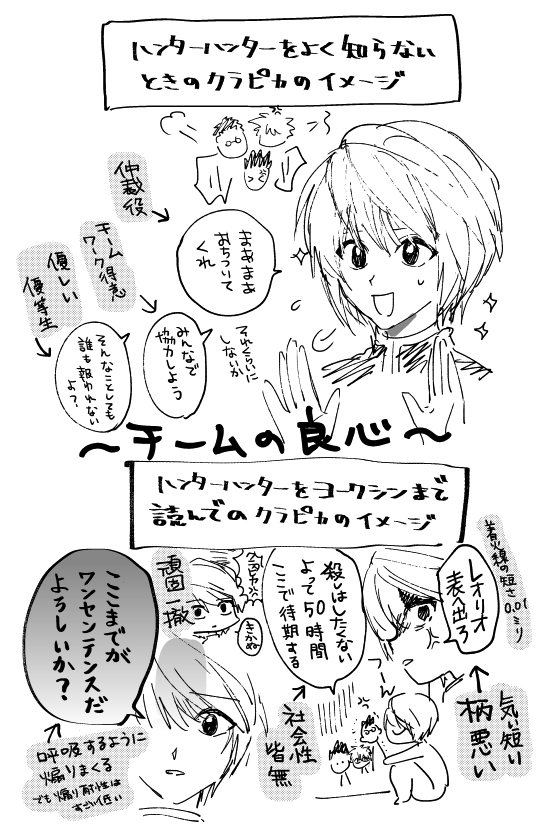 ハンターハンターをよく知らない
ときのクラピカのイメージ
仲裁役
まあまあ
おちついて
くれ
チーム
ワーク得意
みんなで
協力しよう
それくらいに
しないか
優しい
優等生
そんなことしても
誰も報われない
よ?
〜チームの良心〜
ハンターハンターをヨークシンまで
読んでのクラピカのイメージ
レオリオ
表出ろ
着火線の短さ0.01
ミリ
気ぃ短い
柄悪い
殺しはしたくない
よって50時間
ここで待期する
社会性
皆無
頑固一徹
きかぬ
ここまでが
ワンセンテンスだ
よろしいか?
呼吸するように
煽りまくる
でも煽り耐性は
すごい低い